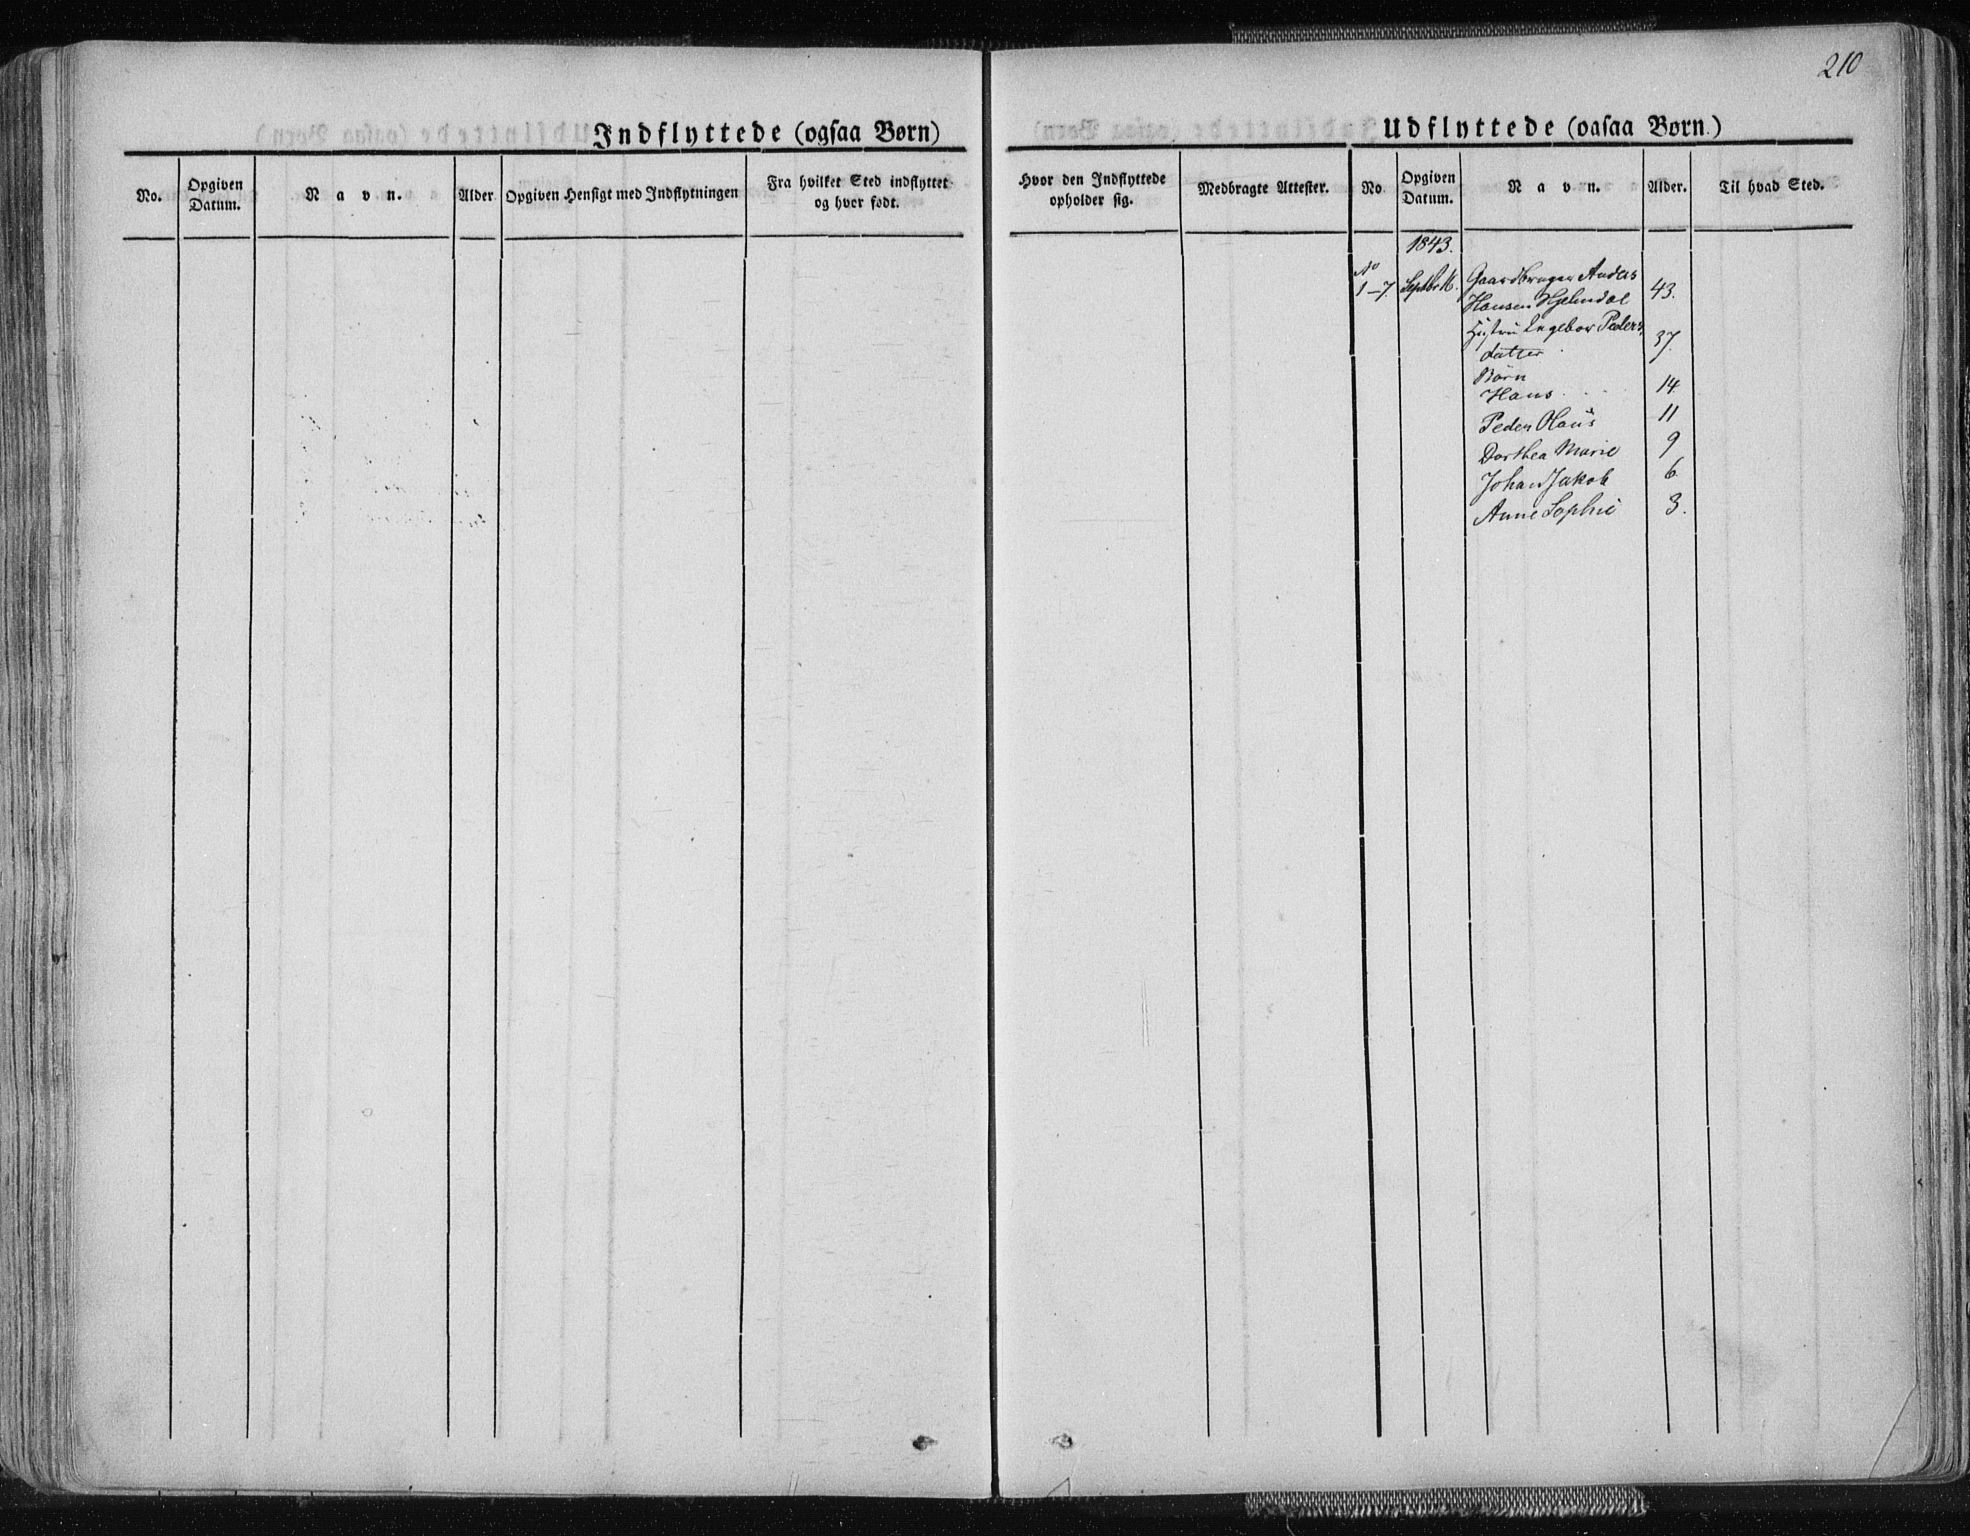 210
Indflyttede (ogsaa Børn)
No.
Opgiven Datum.
Navn.
Alder
Opgiven Hensigt med Indflytningen
Fra hvilket Sted indflyttet og hvor født.
Udflyttede (ogsaa Børn.)
Hvor den Indflyttede opholder sig.
Medbragte Attester.
No
Opgiven Datum.
Navn.
Alder.
Til hvad Sted.
1843.
No
1-7. Septbr 16. Gaardbruger Anders
Hansen Hjelmdal 43.
Hustru Ingebor Peders
datter 37
Børn
Hans 14
Peder Olaüs 11
Dorthea Marie 9
Johan Jakob 6
Anne Sophie 3.